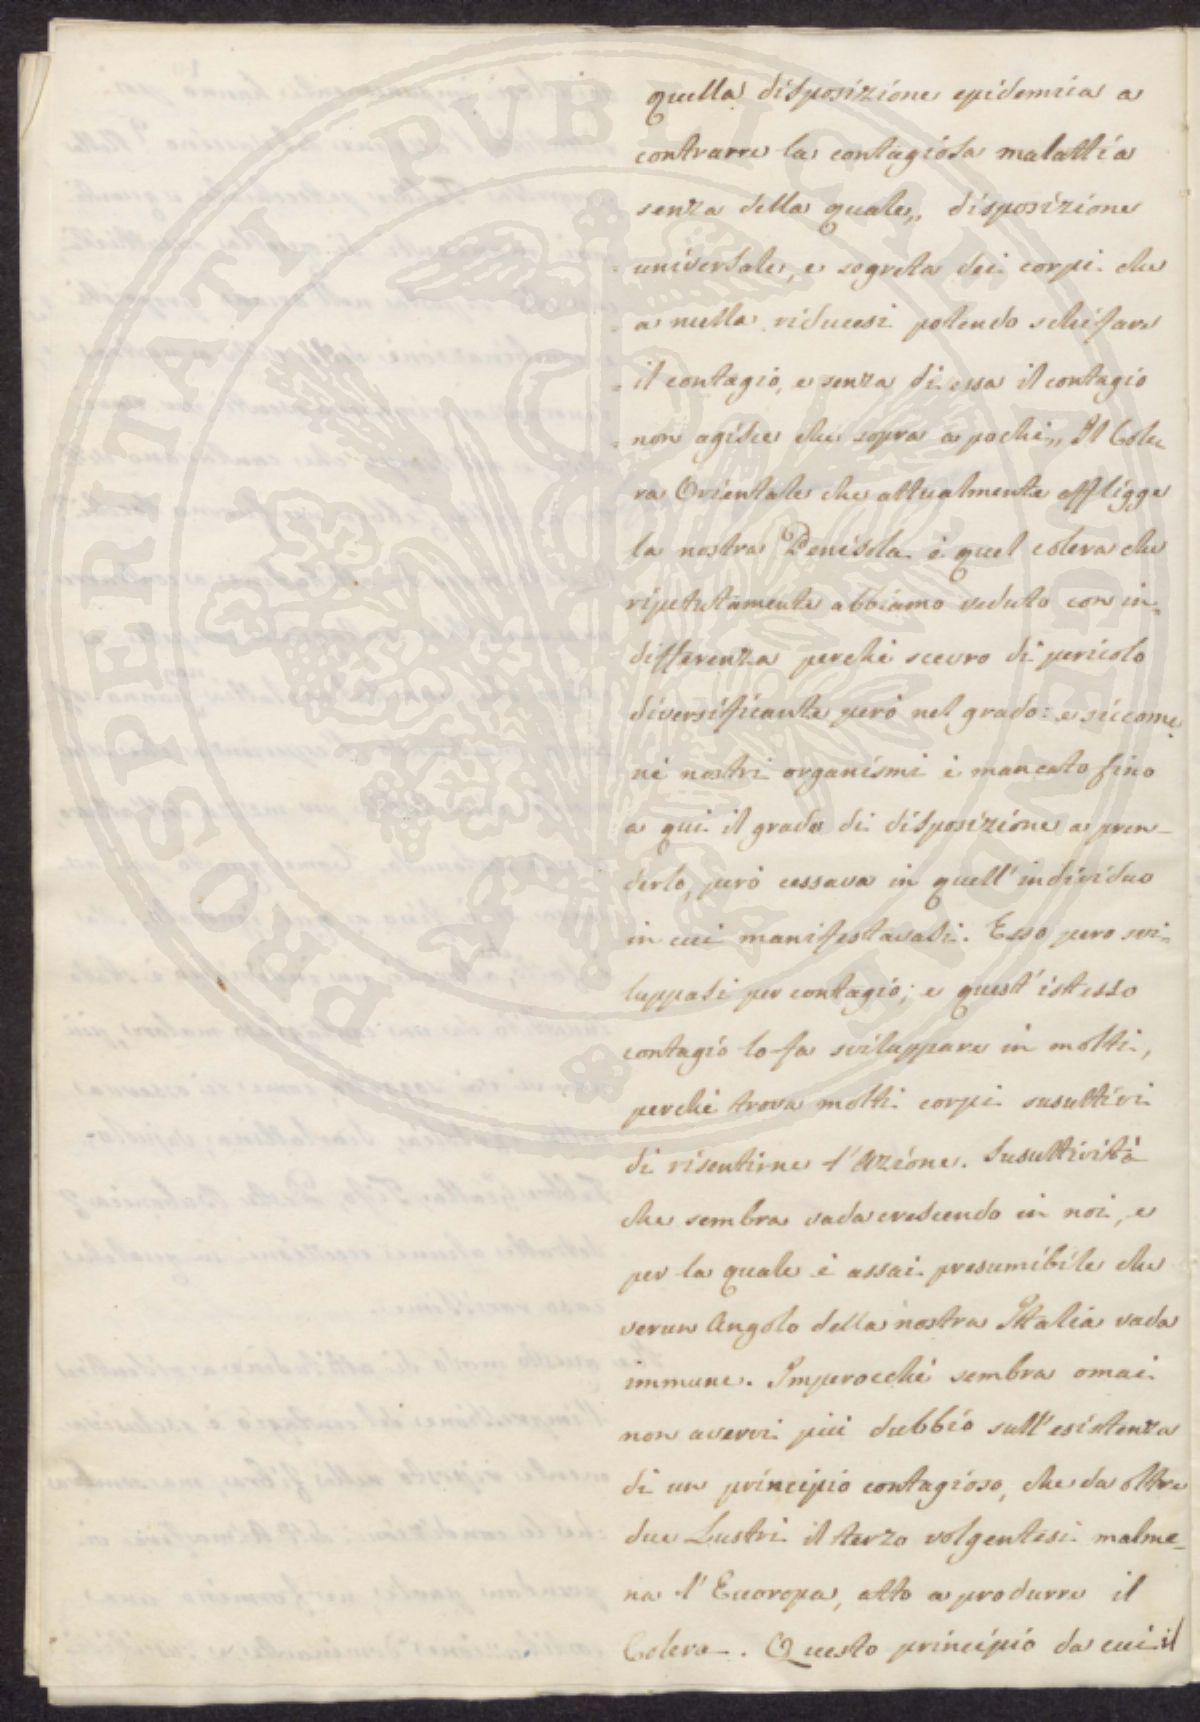 quella disposizione epidemica a
contrarre la contagiosa malattia
senza della quale „ disposizione
universale, e segreta dei corpi che
a nulla riducesi potendo schifare
il contagio, e senza di essa il contagio
non agisce che sopra a pochi „ Il Cole-
ra Orientale che attualmente affligge
la nostra Penisola è quel colera che
ripetutamente abbiamo veduto con in-
differenza perchè scevro di pericolo
diversificante però nel grado: e siccome
nè nostri organismi è mancato fino
a qui il grado di disposizione a pren-
derlo, però cessava in quell' individuo
in cui manifestavasi. Esso pero svi-
luppasi per contagio; e quest' istesso
contagio lo fa sviluppare in molti,
perchè trova molti corpi susultivi
di risentirne l' Azione. Susultività
che sembra vada crescendo in noi, e
per la quale è assai presumibile che
verun Angolo della nostra Italia vada
immune. Imperocchè sembra omai
non avervi più dubbio sull' esistenza
di un principio contagioso, che da oltre
due Lustri il terzo volgentesi malme-
na l' Euoropa, atto a produrre il
Colera. Questo principio da cui il
PROSPERITATI PVBLICAE AVGENDAE